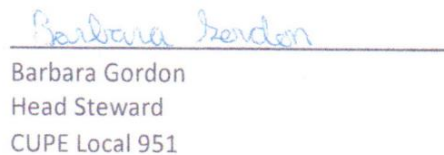 Barbara Gordon
Barbara Gordon
Head Steward
CUPE Local 951